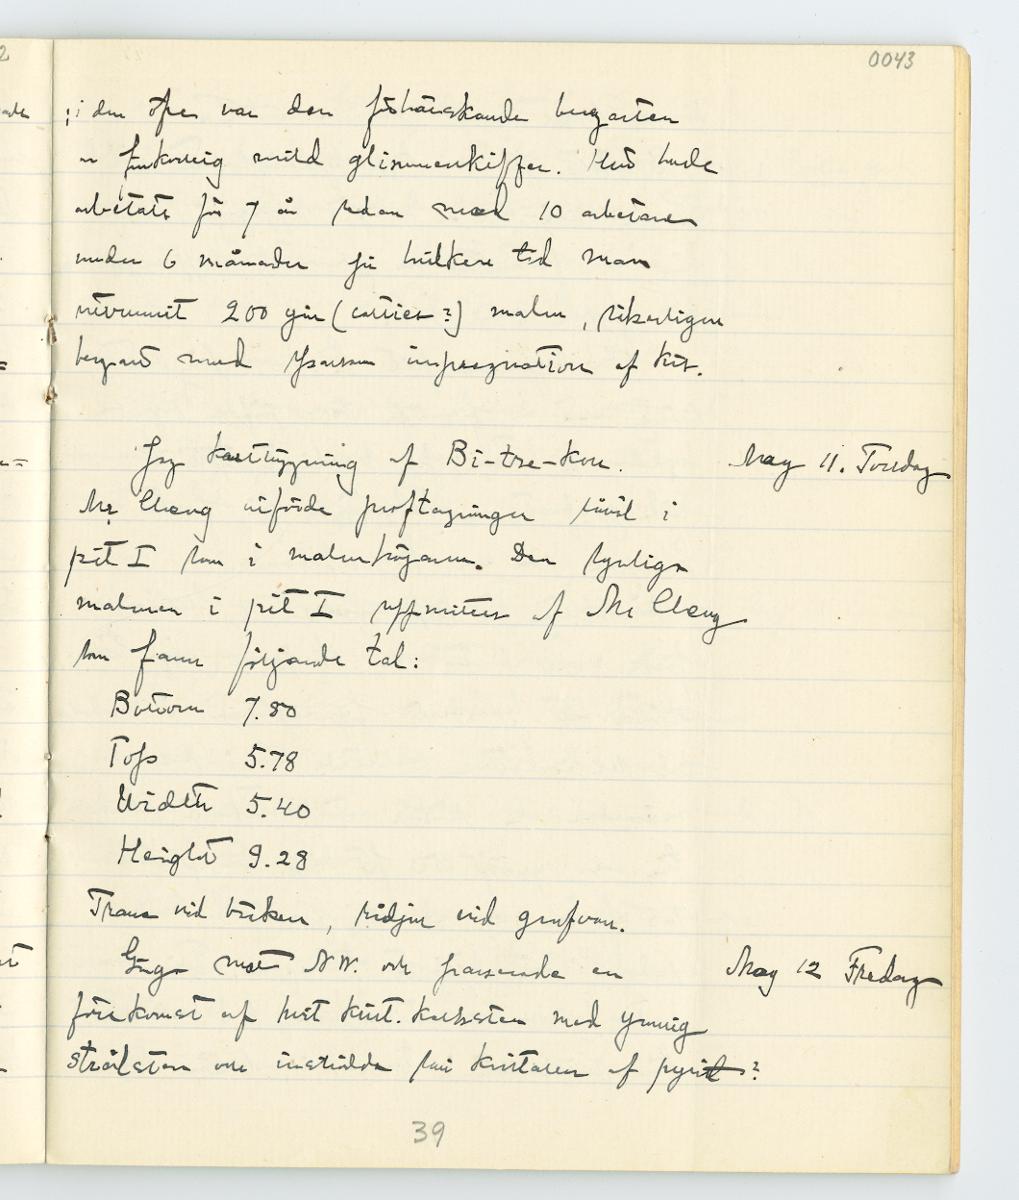 0043
; i den öfre var den förhärskande bergarten
en finkornig mild glimmerskiffer. Här hade
arbetats för 7 år sedan med 10 arbetare
under 6 månader på hvilken tid man
utvunnit 200 gin (catties?) malm, sikerligen
bergart med sparsam impregnation af kis.
Jag kartlägning af Bi-tze-kou. May 11. Torsdag
Mr Cheng utförde proftagningar såväl i
pit I som i malmhögarna. Den synliga
malmen i pit I uppmättes af Mr Cheng
som fann följande tal:
Bottom 7.80
Top 5.78
Width 5.40
Height 9.28
Trans vid bäcken, vid grufvan.
Gingo mot NW. och passerade en May 12 Fredag
förekomst af hvit krist. kalksten med grönig
strålsten och enstaka små kristaller af pyrit?
39